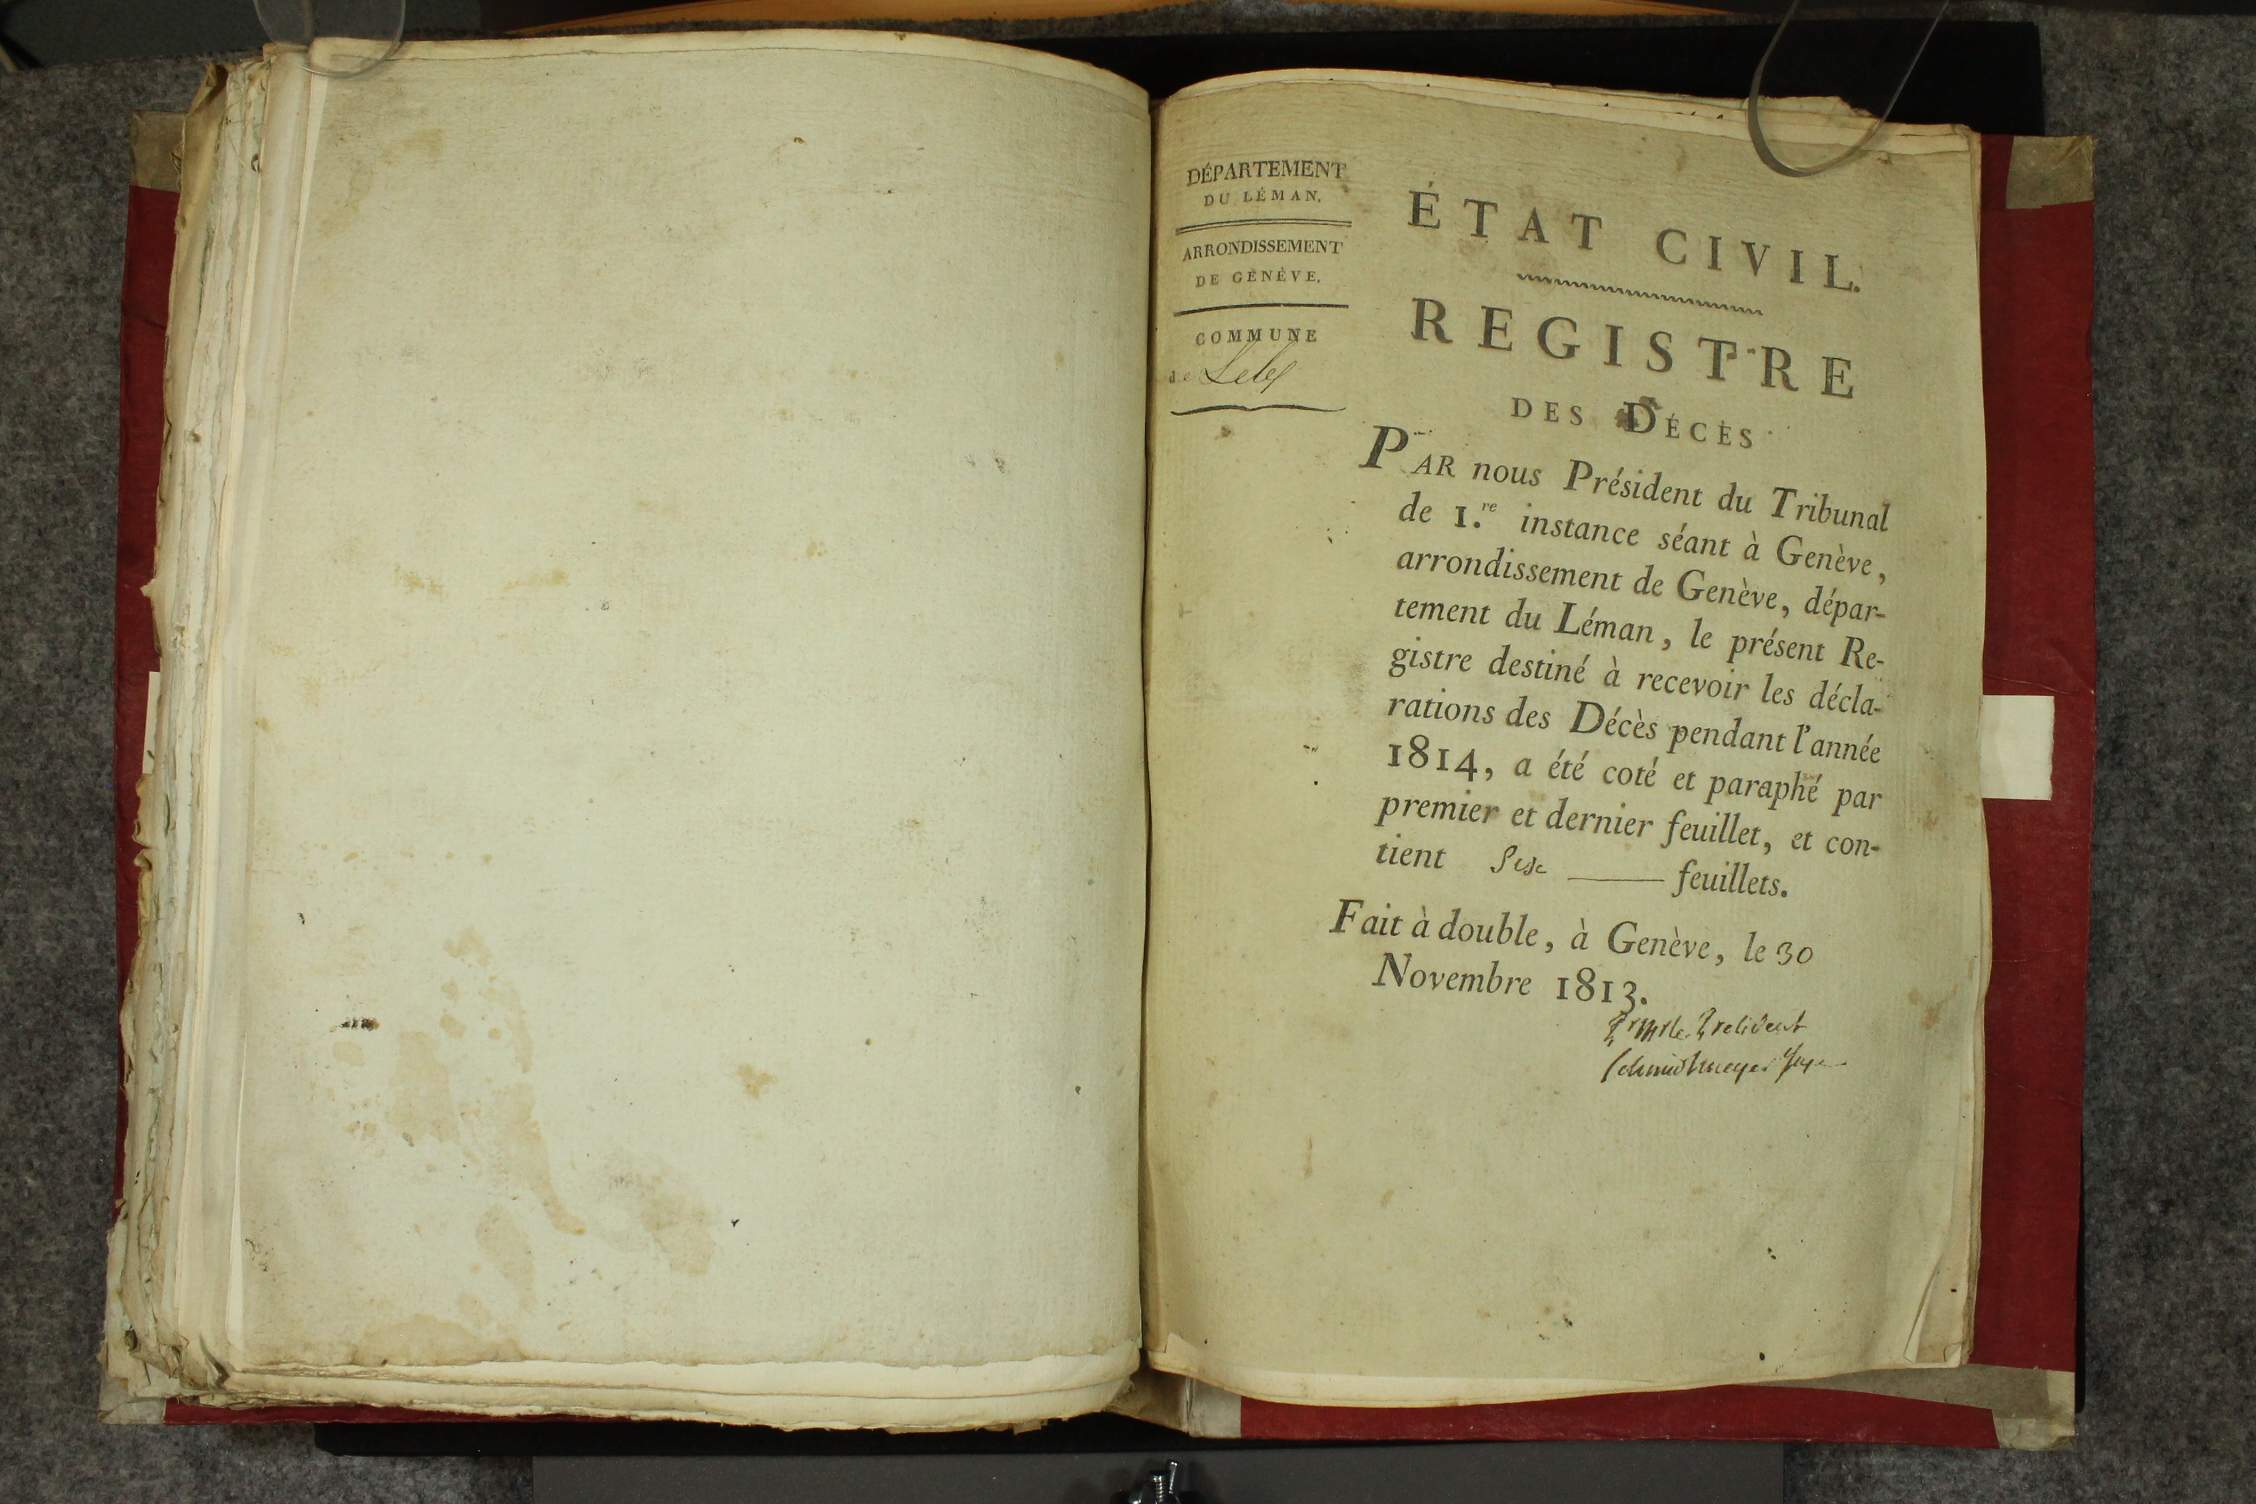 DÉPARTEMENT
DU LÉMAN.
ARRONDISSEMENT
DE GENÈVE.
COMMUNE
de
ÉTAT CIVIL.
REGISTRE
DES DÉCÈS
PAR nous Président du Tribunal
de 1.re instance séant à Genève,
arrondissement de Genève, dépar-
tement du Léman, le présent Re-
gistre destiné à recevoir les décla-
rations des Décès pendant l'année
1814, a été coté et paraphé par
premier et dernier feuillet, et con-
tient feuillets.
Fait à double, à Genève, le 30
Novembre 1813.
Président